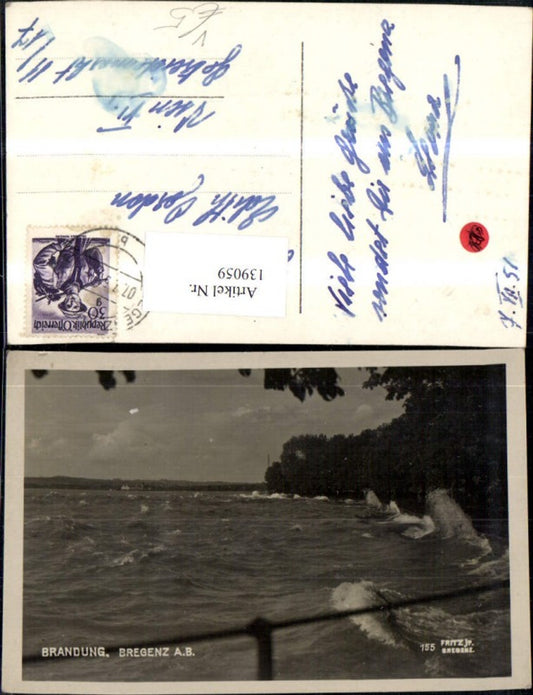 Viele liebe Grüße
sendet dir aus Bregenz
7. VII. 51
Edith Gordon
Wien VI.
11/17
Artikel Nr.
139059
Republik Österreich
30 g
BRANDUNG. BREGENZ A.B.
155 FRITZ jr.
BREGENZ.